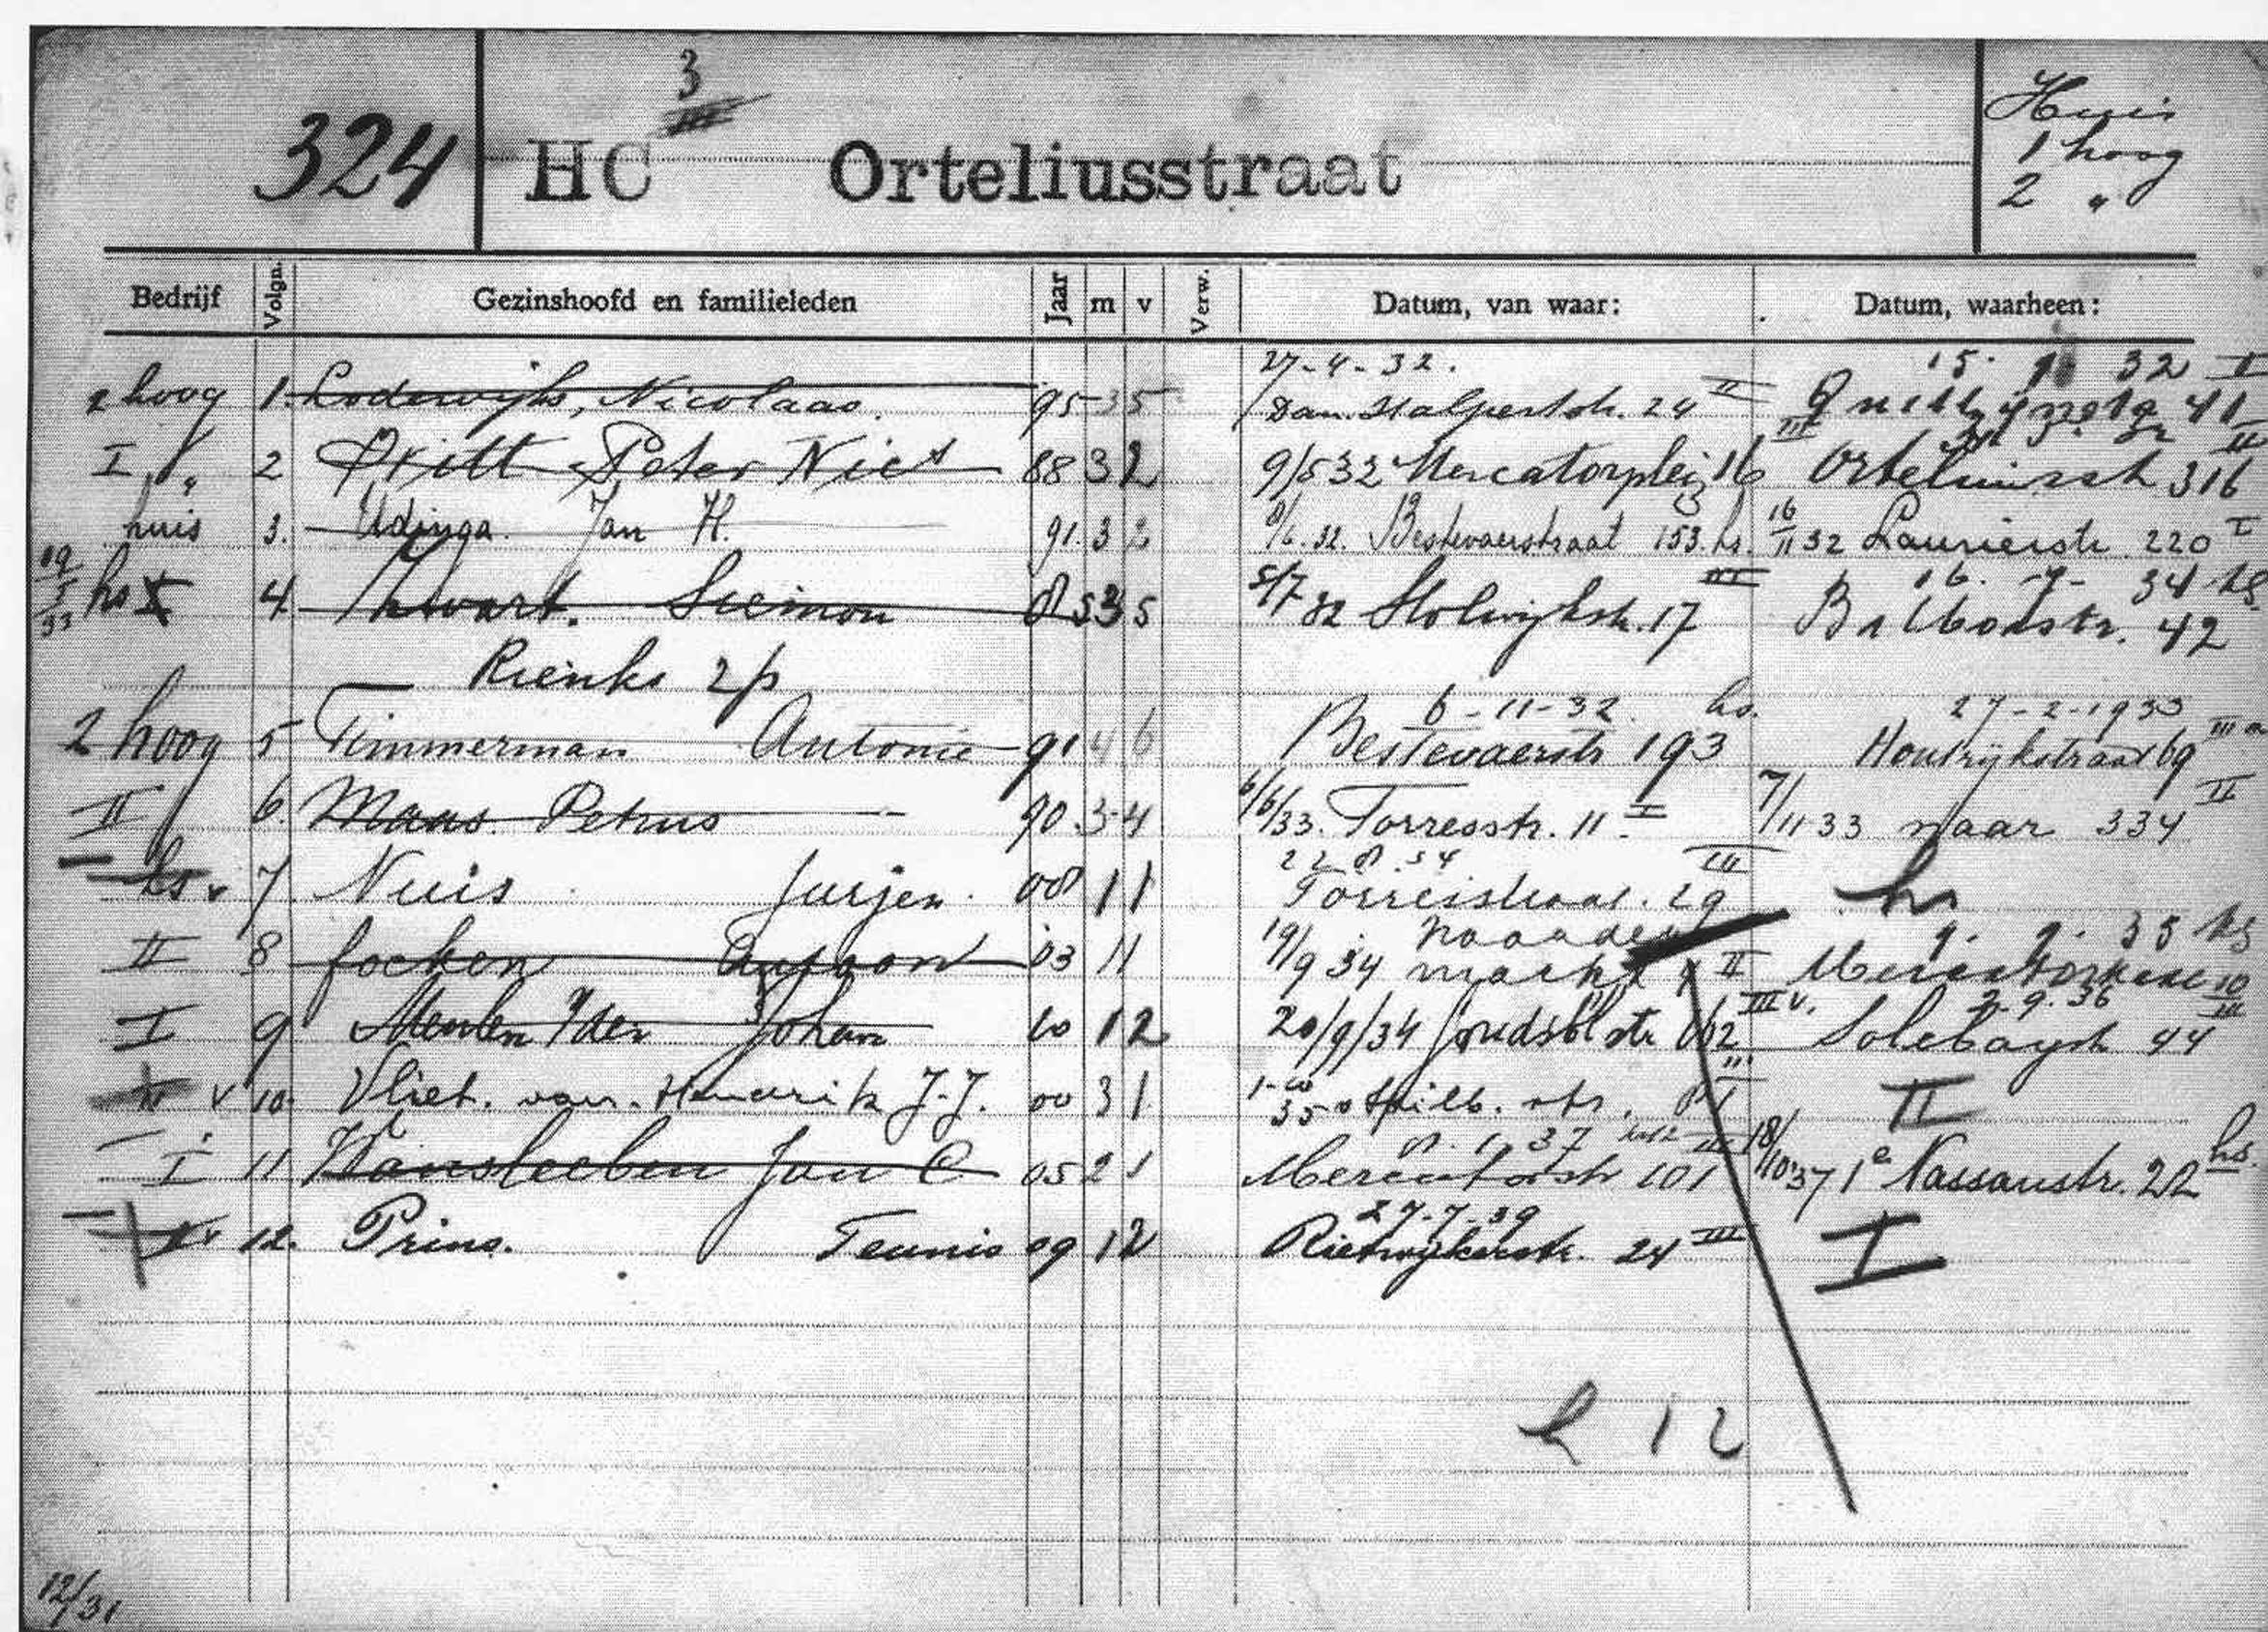 3
324 HC Orteliusstraat
Huis
1 hoog
2 "
Bedrijf Volgn. Gezinshoofd en familieleden Jaar m v Verw. Datum, van waar: Datum, waarheen:
27-4-32. 15. 32 I
2 hoog 1. Lodewijks, Nicolaas. 95 3 5 Dan. Stalpertstr. 24 II 41
I " 2 Peter Nics 88 3 2 9/5 32 Mercatorplein 16 III Orteliusstr 316 II
huis 3. Udinga. Jan H. 91. 3 2 /6.32. Bestevaerstraat 153 hs. 16/11 32 Laurierstr. 220 I
hs 4. Siemon 3 5 5/7 32 Stolwijkstr. 17 III 16. -7- 34 hs Balboastr. 42
Rienks 2p
6-11-32. hs. 27-2-1933
2 hoog 5 Timmerman Antonie 91 4 6 Bestevaerstr 193 Houtrijkstraat 69 III
II 6. Maas. Petrus 90. 3-4 6/6/33. Torresstr. 11 I 7/11 33 naar 334 II
22 8 34 III
hs v 7. Nuis Jurjen. 08 1 1 Torresstraat. 29 hs
II 8 focken 03 11 19/9 34 markt II 9. 35 hs
I 9 Meulen v der Johan 10 1 2 20/9/34 2 III v. 2.9.36 Solebaystr 44 III
v 10. Vliet. van. Hendrik J.J. 00 3 1 1-10 35 Spilb. str. II
8.1.37 III
I 11. Wansleeben Jan C 05 2 1 Mercatorstr 101 18/10 37 1e Nassaustr. 22 hs.
27-7-39
v 12. Prins. Teunis 09 1 2 Rietwijkerstr. 24 III I
12
12/31